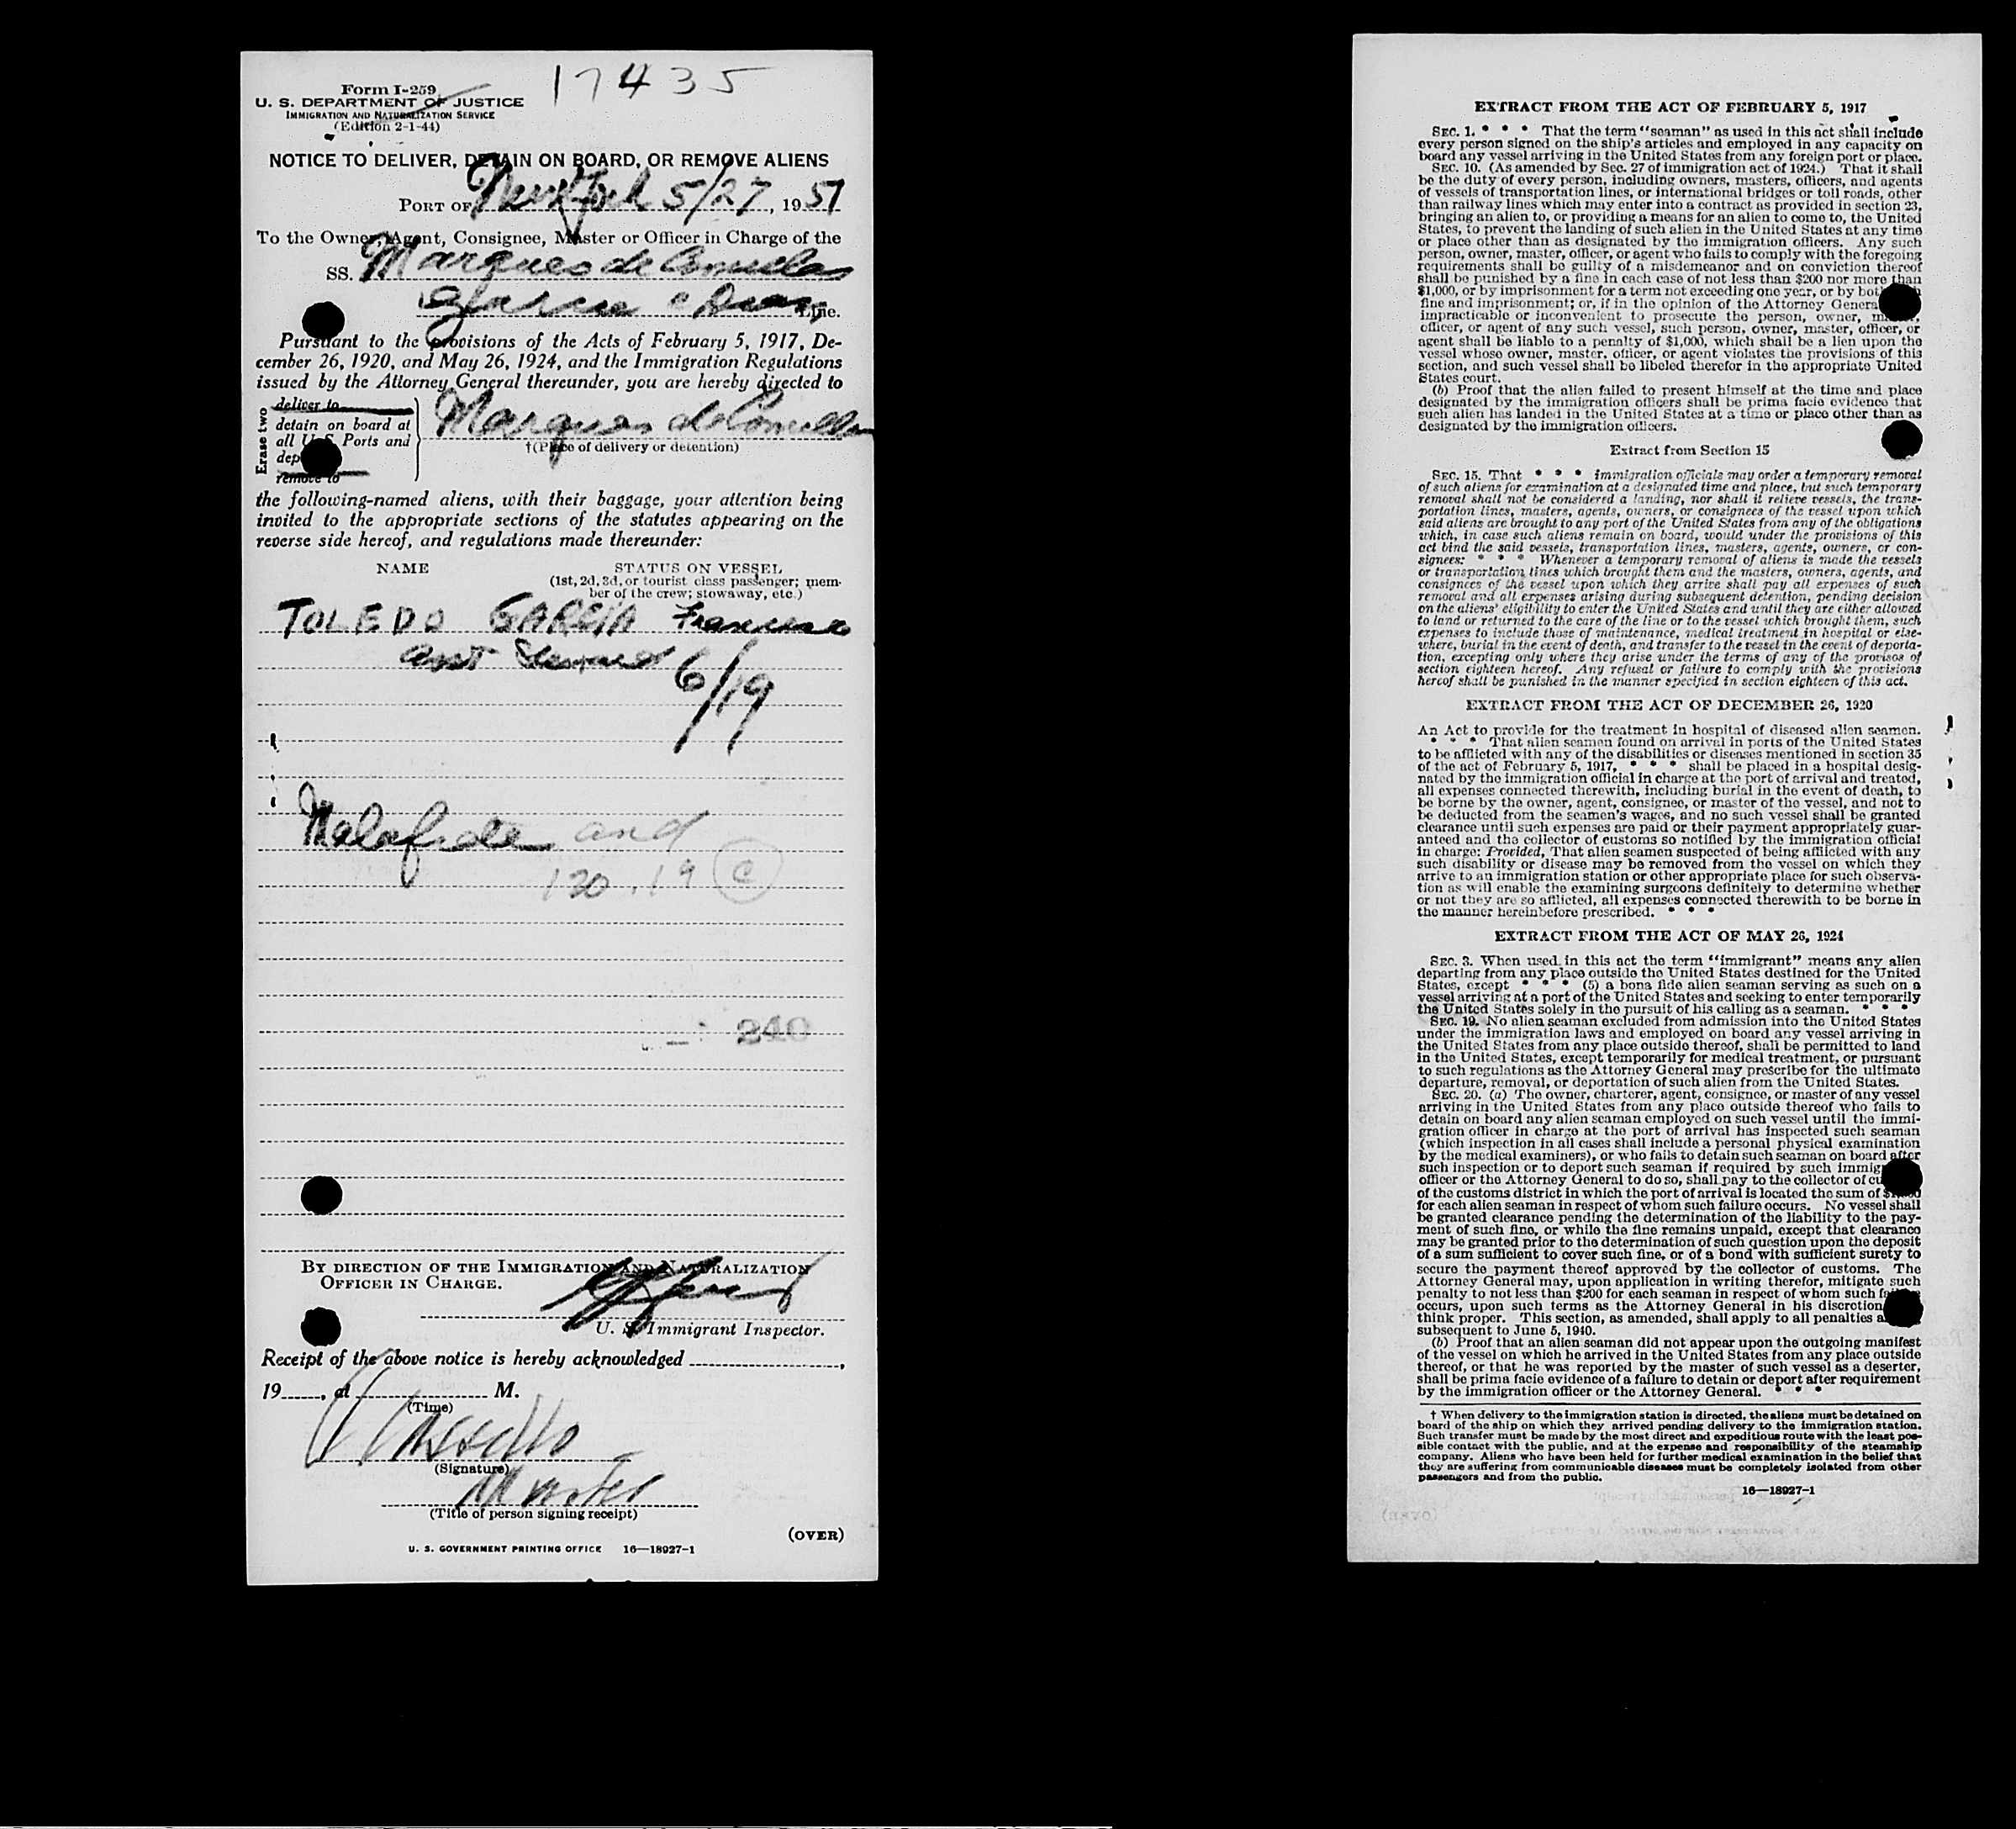 17435
Form I-259
U. S. DEPARTMENT OF JUSTICE
IMMIGRATION AND NATURALIZATION SERVICE
(Edition 2-1-44)
NOTICE TO DELIVER, DETAIN ON BOARD, OR REMOVE ALIENS
PORT OF New York 5/27, 1951
To the Owner, Agent, Consignee, Master or Officer in Charge of the
SS. Marques de Comillas
Garcia & Diaz Line.
Pursuant to the provisions of the Acts of February 5, 1917, De-
cember 26, 1920, and May 26, 1924, and the Immigration Regulations
issued by the Attorney General thereunder, you are hereby directed to
Erase two
deliver to
detain on board at
all U. S. Ports and
dep
remove to
Marques de Comillas
†(Place of delivery or detention)
the following-named aliens, with their baggage, your attention being
invited to the appropriate sections of the statutes appearing on the
reverse side hereof, and regulations made thereunder:
NAME STATUS ON VESSEL
(1st, 2d, 3d, or tourist class passenger; mem-
ber of the crew; stowaway, etc.)
TOLEDO GARCIA Francisco
asst Steward 6/19
Malafide and
120.19 C
240
BY DIRECTION OF THE IMMIGRATION AND NATURALIZATION
OFFICER IN CHARGE.
U. S. Immigrant Inspector.
Receipt of the above notice is hereby acknowledged ,
19 , at M.
(Time)
(Signature)
Master
(Title of person signing receipt)
(OVER)
U. S. GOVERNMENT PRINTING OFFICE 16—18927-1
EXTRACT FROM THE ACT OF FEBRUARY 5, 1917
SEC. 1. * * * That the term "seaman" as used in this act shall include
every person signed on the ship's articles and employed in any capacity on
board any vessel arriving in the United States from any foreign port or place.
SEC. 10. (As amended by Sec. 27 of immigration act of 1924.) That it shall
be the duty of every person, including owners, masters, officers, and agents
of vessels of transportation lines, or international bridges or toll roads, other
than railway lines which may enter into a contract as provided in section 23,
bringing an alien to, or providing a means for an alien to come to, the United
States, to prevent the landing of such alien in the United States at any time
or place other than as designated by the immigration officers. Any such
person, owner, master, officer, or agent who fails to comply with the foregoing
requirements shall be guilty of a misdemeanor and on conviction thereof
shall be punished by a fine in each case of not less than $200 nor more than
$1,000, or by imprisonment for a term not exceeding one year, or by both
fine and imprisonment; or, if in the opinion of the Attorney General
impracticable or inconvenient to prosecute the person, owner, master,
officer, or agent of any such vessel, such person, owner, master, officer, or
agent shall be liable to a penalty of $1,000, which shall be a lien upon the
vessel whose owner, master, officer, or agent violates the provisions of this
section, and such vessel shall be libeled therefor in the appropriate United
States court.
(b) Proof that the alien failed to present himself at the time and place
designated by the immigration officers shall be prima facie evidence that
such alien has landed in the United States at a time or place other than as
designated by the immigration officers.
Extract from Section 15
SEC. 15. That * * * immigration officials may order a temporary removal
of such aliens for examination at a designated time and place, but such temporary
removal shall not be considered a landing, nor shall it relieve vessels, the trans-
portation lines, masters, agents, owners, or consignees of the vessel upon which
said aliens are brought to any port of the United States from any of the obligations
which, in case such aliens remain on board, would under the provisions of this
act bind the said vessels, transportation lines, masters, agents, owners, or con-
signees: * * * Whenever a temporary removal of aliens is made the vessels
or transportation lines which brought them and the masters, owners, agents, and
consignees of the vessel upon which they arrive shall pay all expenses of such
removal and all expenses arising during subsequent detention, pending decision
on the aliens' eligibility to enter the United States and until they are either allowed
to land or returned to the care of the line or to the vessel which brought them, such
expenses to include those of maintenance, medical treatment in hospital or else-
where, burial in the event of death, and transfer to the vessel in the event of deporta-
tion, excepting only where they arise under the terms of any of the provisos of
section eighteen hereof. Any refusal or failure to comply with the provisions
hereof shall be punished in the manner specified in section eighteen of this act.
EXTRACT FROM THE ACT OF DECEMBER 26, 1920
An Act to provide for the treatment in hospital of diseased alien seamen.
* * * That alien seamen found on arrival in ports of the United States
to be afflicted with any of the disabilities or diseases mentioned in section 35
of the act of February 5, 1917, * * * shall be placed in a hospital desig-
nated by the immigration official in charge at the port of arrival and treated,
all expenses connected therewith, including burial in the event of death, to
be borne by the owner, agent, consignee, or master of the vessel, and not to
be deducted from the seamen's wages, and no such vessel shall be granted
clearance until such expenses are paid or their payment appropriately guar-
anteed and the collector of customs so notified by the immigration official
in charge: Provided, That alien seamen suspected of being afflicted with any
such disability or disease may be removed from the vessel on which they
arrive to an immigration station or other appropriate place for such observa-
tion as will enable the examining surgeons definitely to determine whether
or not they are so afflicted, all expenses connected therewith to be borne in
the manner hereinbefore prescribed. * * *
EXTRACT FROM THE ACT OF MAY 26, 1924
SEC. 3. When used in this act the term "immigrant" means any alien
departing from any place outside the United States destined for the United
States, except * * * (5) a bona fide alien seaman serving as such on a
vessel arriving at a port of the United States and seeking to enter temporarily
the United States solely in the pursuit of his calling as a seaman. * * *
SEC. 19. No alien seaman excluded from admission into the United States
under the immigration laws and employed on board any vessel arriving in
the United States from any place outside thereof, shall be permitted to land
in the United States, except temporarily for medical treatment, or pursuant
to such regulations as the Attorney General may prescribe for the ultimate
departure, removal, or deportation of such alien from the United States.
SEC. 20. (a) The owner, charterer, agent, consignee, or master of any vessel
arriving in the United States from any place outside thereof who fails to
detain on board any alien seaman employed on such vessel until the immi-
gration officer in charge at the port of arrival has inspected such seaman
(which inspection in all cases shall include a personal physical examination
by the medical examiners), or who fails to detain such seaman on board after
such inspection or to deport such seaman if required by such immig
officer or the Attorney General to do so, shall pay to the collector of cu
of the customs district in which the port of arrival is located the sum of
for each alien seaman in respect of whom such failure occurs. No vessel shall
be granted clearance pending the determination of the liability to the pay-
ment of such fine, or while the fine remains unpaid, except that clearance
may be granted prior to the determination of such question upon the deposit
of a sum sufficient to cover such fine, or of a bond with sufficient surety to
secure the payment thereof approved by the collector of customs. The
Attorney General may, upon application in writing therefor, mitigate such
penalty to not less than $200 for each seaman in respect of whom such failure
occurs, upon such terms as the Attorney General in his discretion
think proper. This section, as amended, shall apply to all penalties a
subsequent to June 5, 1940.
(b) Proof that an alien seaman did not appear upon the outgoing manifest
of the vessel on which he arrived in the United States from any place outside
thereof, or that he was reported by the master of such vessel as a deserter,
shall be prima facie evidence of a failure to detain or deport after requirement
by the immigration officer or the Attorney General. * * *
† When delivery to the immigration station is directed, the aliens must be detained on
board of the ship on which they arrived pending delivery to the immigration station.
Such transfer must be made by the most direct and expeditious route with the least pos-
sible contact with the public, and at the expense and responsibility of the steamship
company. Aliens who have been held for further medical examination in the belief that
they are suffering from communicable diseases must be completely isolated from other
passengers and from the public.
16—18927-1